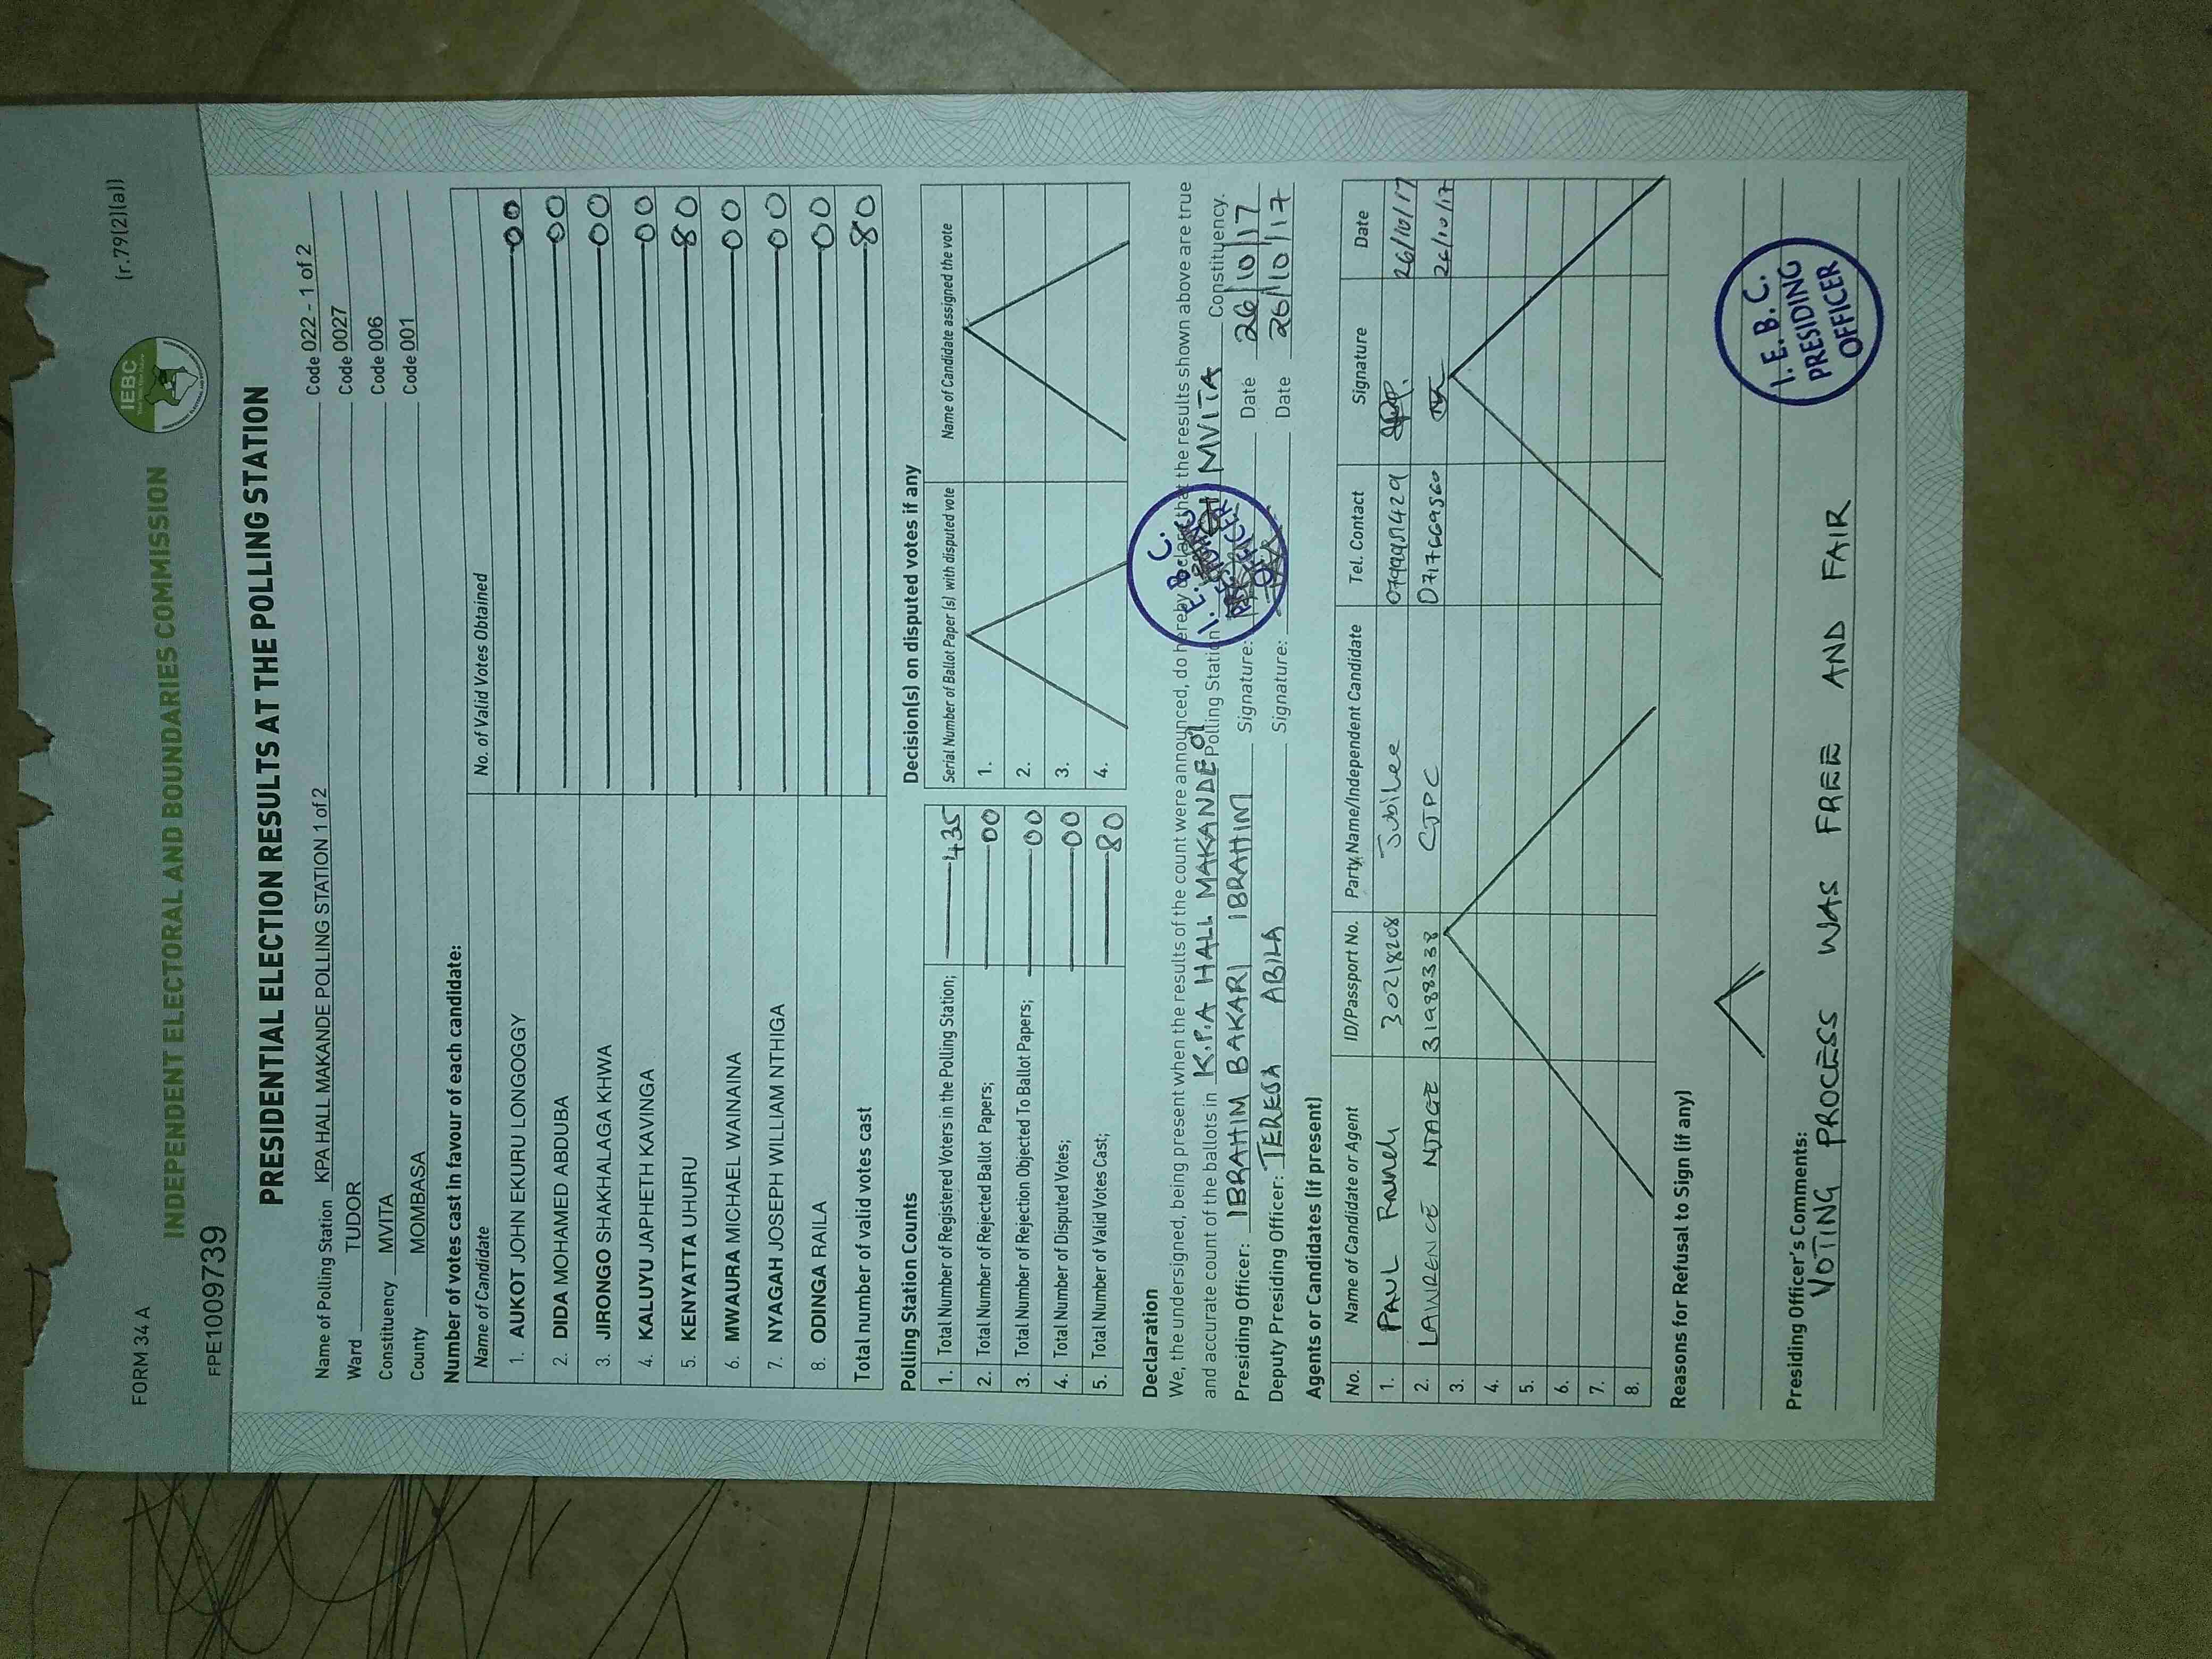 FORM 34 A
(r.79(2)(a))
IEBC
INDEPENDENT ELECTORAL AND BOUNDARIES COMMISSION
FPE1009739
PRESIDENTIAL ELECTION RESULTS AT THE POLLING STATION
Name of Polling Station KPA HALL MAKANDE POLLING STATION 1 of 2 Code 022 - 1 of 2
Ward TUDOR Code 0027
Constituency MVITA Code 006
County MOMBASA Code 001
Number of votes cast in favour of each candidate:
Name of Candidate No. of Valid Votes Obtained
1. AUKOT JOHN EKURU LONGOGGY 00
2. DIDA MOHAMED ABDUBA 00
3. JIRONGO SHAKHALAGA KHWA 00
4. KALUYU JAPHETH KAVINGA 00
5. KENYATTA UHURU 80
6. MWAURA MICHAEL WAINAINA 00
7. NYAGAH JOSEPH WILLIAM NTHIGA 00
8. ODINGA RAILA 00
Total number of valid votes cast 80
Polling Station Counts
1. Total Number of Registered Voters in the Polling Station; 435
2. Total Number of Rejected Ballot Papers; 00
3. Total Number of Rejection Objected To Ballot Papers; 00
4. Total Number of Disputed Votes; 00
5. Total Number of Valid Votes Cast; 80
Decision(s) on disputed votes if any
Serial Number of Ballot Paper (s) with disputed vote Name of Candidate assigned the vote
1.
2.
3.
4.
Declaration
We, the undersigned, being present when the results of the count were announced, do hereby declare that the results shown above are true
and accurate count of the ballots in K.P.A HALL MAKANDE 01 Polling Station MVITA Constituency.
Presiding Officer: IBRAHIM BAKARI IBRAHIM Signature: Date 26/10/17
Deputy Presiding Officer: TERESA ABILA Signature: Date 26/10/17
I. E. B. C.
OFFICER
Agents or Candidates (if present)
No. Name of Candidate or Agent ID/Passport No. Party Name/Independent Candidate Tel. Contact Signature Date
1. PAUL 30218208 Jubilee 26/10/17
2. LAWRENCE NJAGE 31988338 CJPC 0717669560 26/10/17
3.
4.
5.
6.
7.
8.
Reasons for Refusal to Sign (if any)
Presiding Officer's Comments:
VOTING PROCESS WAS FREE AND FAIR
I. E. B. C.
PRESIDING
OFFICER